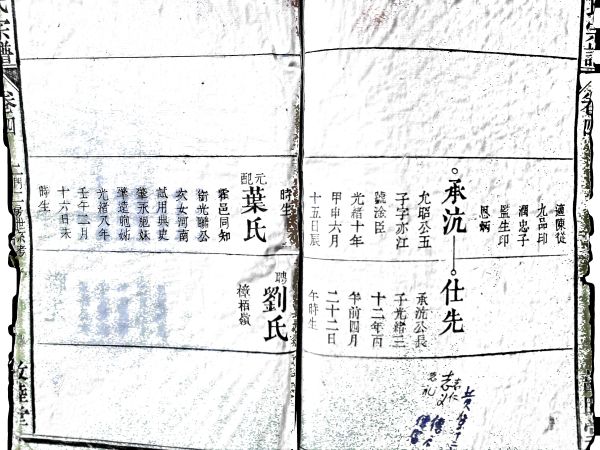 適陳從
九品印
潤忠子
監生印
恩炳
承沆—仕先
允昭公五
子字亦江
號淦臣
光緒十年
甲申六月
十五日辰
承沆公長
子光緒三
十二年丙
午前四月
二十二日
午時生
志仁
志义
志礼
時生
元配葉氏
霍邑同知
次女河南
試用典史
肇承胞妹
肇遠胞姊
光緒八年
壬午二月
十六日未
時生
聘劉氏
樟栢嶺
氏宗譜
卷四
敦睦堂